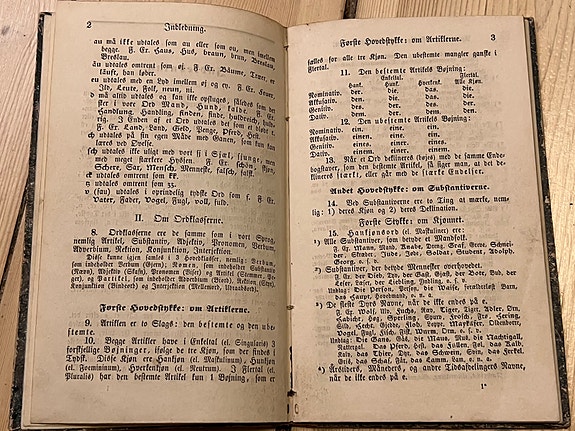 2 Indledning.
au må ikke udtales som au eller som ou, men imellem
begge. F. Ex. Haus, Hus, braun, brun, Breslau,
Breslau.
äu udtales omtrent som øj. F. Ex. Bäume, Træer, er
läuft, han løber.
eu udtales med en Lyd imellem øj og ey. F. Ex. Feuer,
Ild, Leute, Folk, neun, ni.
d må altid udtales og kan ikke opsluges, således som det
sker i vore Ord Mand, Hund, kalde. F. Ex.
Handlung, Handling, finden, finde, huldreich, huld-
rig. I Enden af et Ord udtales det som et bløft t.
F. Ex. Land, Land, Geld, Penge, Pferd, Hest.
ch udtales på sin egen Måde med Ganen, som kun kan
læres ved Øvelse.
sch udtales ikke uligt med vort sj i Sjæl, sjunge, men
med meget stærkere Hyslen. F. Ex. schön, skjøn,
Schere, Sax, Mensch, Menneske, falsch, falsk.
ck udtales omtrent som kk.
tz udtales omtrent som zz.
v (fau) udtales i oprindelig tydske Ord som f. F. Ex.
Vater, Fader, Vogel, Fugl, voll, fuld.
II. Om Ordklasserne.
8. Ordklasserne ere de samme som i vort Sprog,
nemlig Artikel, Substantiv, Adjektiv, Pronomen, Verbum,
Adverbium, Rektion, Konjunktion, Interjektion.
Disse kunne igjen samles i 3 Hovedklasser, nemlig: Verbum,
som indeholder Verbum (Gjern), Nomen, som indeholder Substantiv
(Navn), Adjektiv (Tillægs), Pronomen (Viser) og Artikel (Stammer
ger), og Partikel, som indeholder Adverbium (Biord), Rektion (Styr),
Konjunktion (Bindeord) og Interjektion (Mellemord, Udraabsord).
Første Hovedstykke: om Artiklerne.
9. Artiklen er to Slags: den bestemte og den ube-
stemte.
10. Begge Artikler have i Enkeltal (el. Singularis) 3
forskjellige Bøjninger, ifølge de tre Kjøn, der findes i
Tydsk. Disse Kjøn ere Hankjøn (el. Maskulinum), Hunkjøn
(el. Foemininum), Hverkenkjøn (el. Neutrum). I Flertal (el.
Pluralis) har den bestemte Artikel kun 1 Bøjning, som er
Første Hovedstykke: om Artiklerne. 3
fælles for alle tre Kjøn. Den ubestemte mangler ganske i
Flertal.
11. Den bestemte Artikels Bøjning:
Enkeltal. Flertal.
Hank. Hunk. Hverkenk. Alle Kjøn.
Nominativ. der. die. das. die.
Akkusativ. den. die. das. die.
Genitiv. des. der. des. der.
Dativ. dem. der. dem. den.
12. Den ubestemte Artikels Bøjning:
Nominativ. ein. eine. ein.
Akkusativ. einen. eine. ein.
Genitiv. eines. einer. eines.
Dativ. einem. einer. einem.
13. Når et Ord deklineres (bøjes) med de samme Ende-
bogstaver, som den bestemte Artikel, så siger man, at det de-
clineres stærkt, eller går med de stærke Endelser.
Andet Hovedstykke: om Substantiverne.
14. Ved Substantiverne ere to Ting at mærke, nem-
lig: 1) deres Kjøn og 2) deres Deklination.
Første Stykke: om Kjønnet.
15. Hankjønsord (el. Maskuliner) ere:
¹) Alle Substantiver, som betyde et Mandfolk.
F. Ex. Mann, Mand, Knabe, Dreng, Graf, Greve, Schnei-
der, Skræder, Jude, Jøde, Soldat, Student, Adolph,
Georg, o. s. v.
²) Substantiver, der betyde Mennesker overhovedet.
F. Ex. der Dieb, Tyv, der Gast, Gjæst, der Bote, Bud, der
Leser, Læser, der Liebling, Yndling, o. s. v.
Undtag: Die Person, Person, die Waise, forældreløst Barn,
das Haupt, Hovedmand, o. m. a.
³) De fleste Dyrs Navne, når de ikke endes på e.
F. Ex. Wolf, Ulv, Fuchs, Ræv, Tiger, Tiger, Adler, Ørn,
Habicht, Høg, Sperling, Spurv, Frosch, Frø, Hering,
Sild, Hecht, Gjedde, Floh, Loppe, Maykäfer, Oldenborre,
Vogel, Fugl, Fisch, Fisk, Wurm, Orm, o. s. v.
Undtag: Die Gans, Gås, die Maus, Mus, die Nachtigall,
Nattergal. Das Pferd, Hest, das Füllen, Føl, das Kalb,
Kalv, das Thier, Dyr, das Schwein, Svin, das Ferkel,
Gris, das Schaf, Får, das Lamm, Lam, o. n. a.
⁴) Årstiders, Måneders, og andre Tidsafdelingers Navne,
når de ikke endes på e.
1*